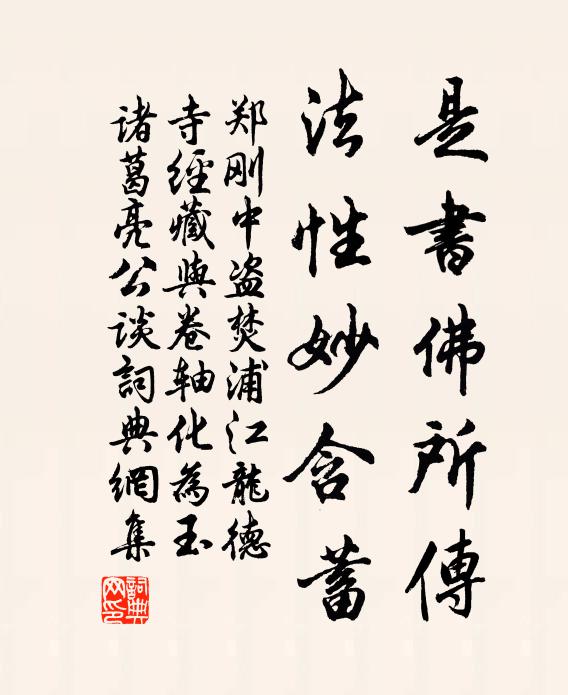 是書佛所傳
法性妙含蓄
郑刚中盗焚浦江龍德
寺經藏與卷轴化為玉
诸葛亮公谈詞典網集
詞典
网印